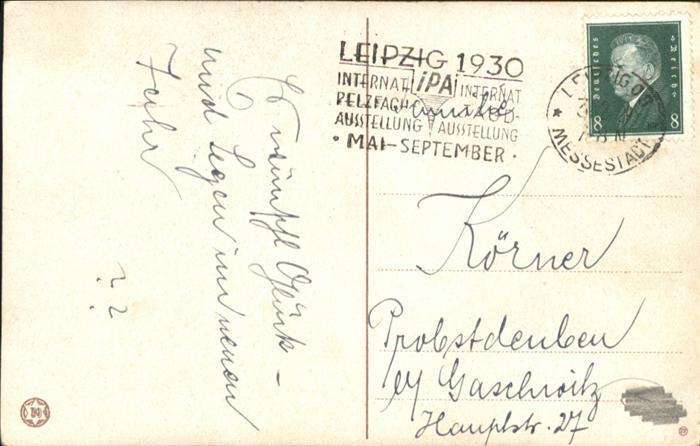 und Segen im neuen
Jahr
? ?
LEIPZIG 1930
INTERNAT iPA INTERNAT
PELZFACH
AUSSTELLUNG AUSSTELLUNG
• MAI–SEPTEMBER •
Deutsches Reich
8 8
LEIPZIG
MESSESTADT
Körner
Probstdeuben
b/ Gaschwitz
Hauptstr. 27